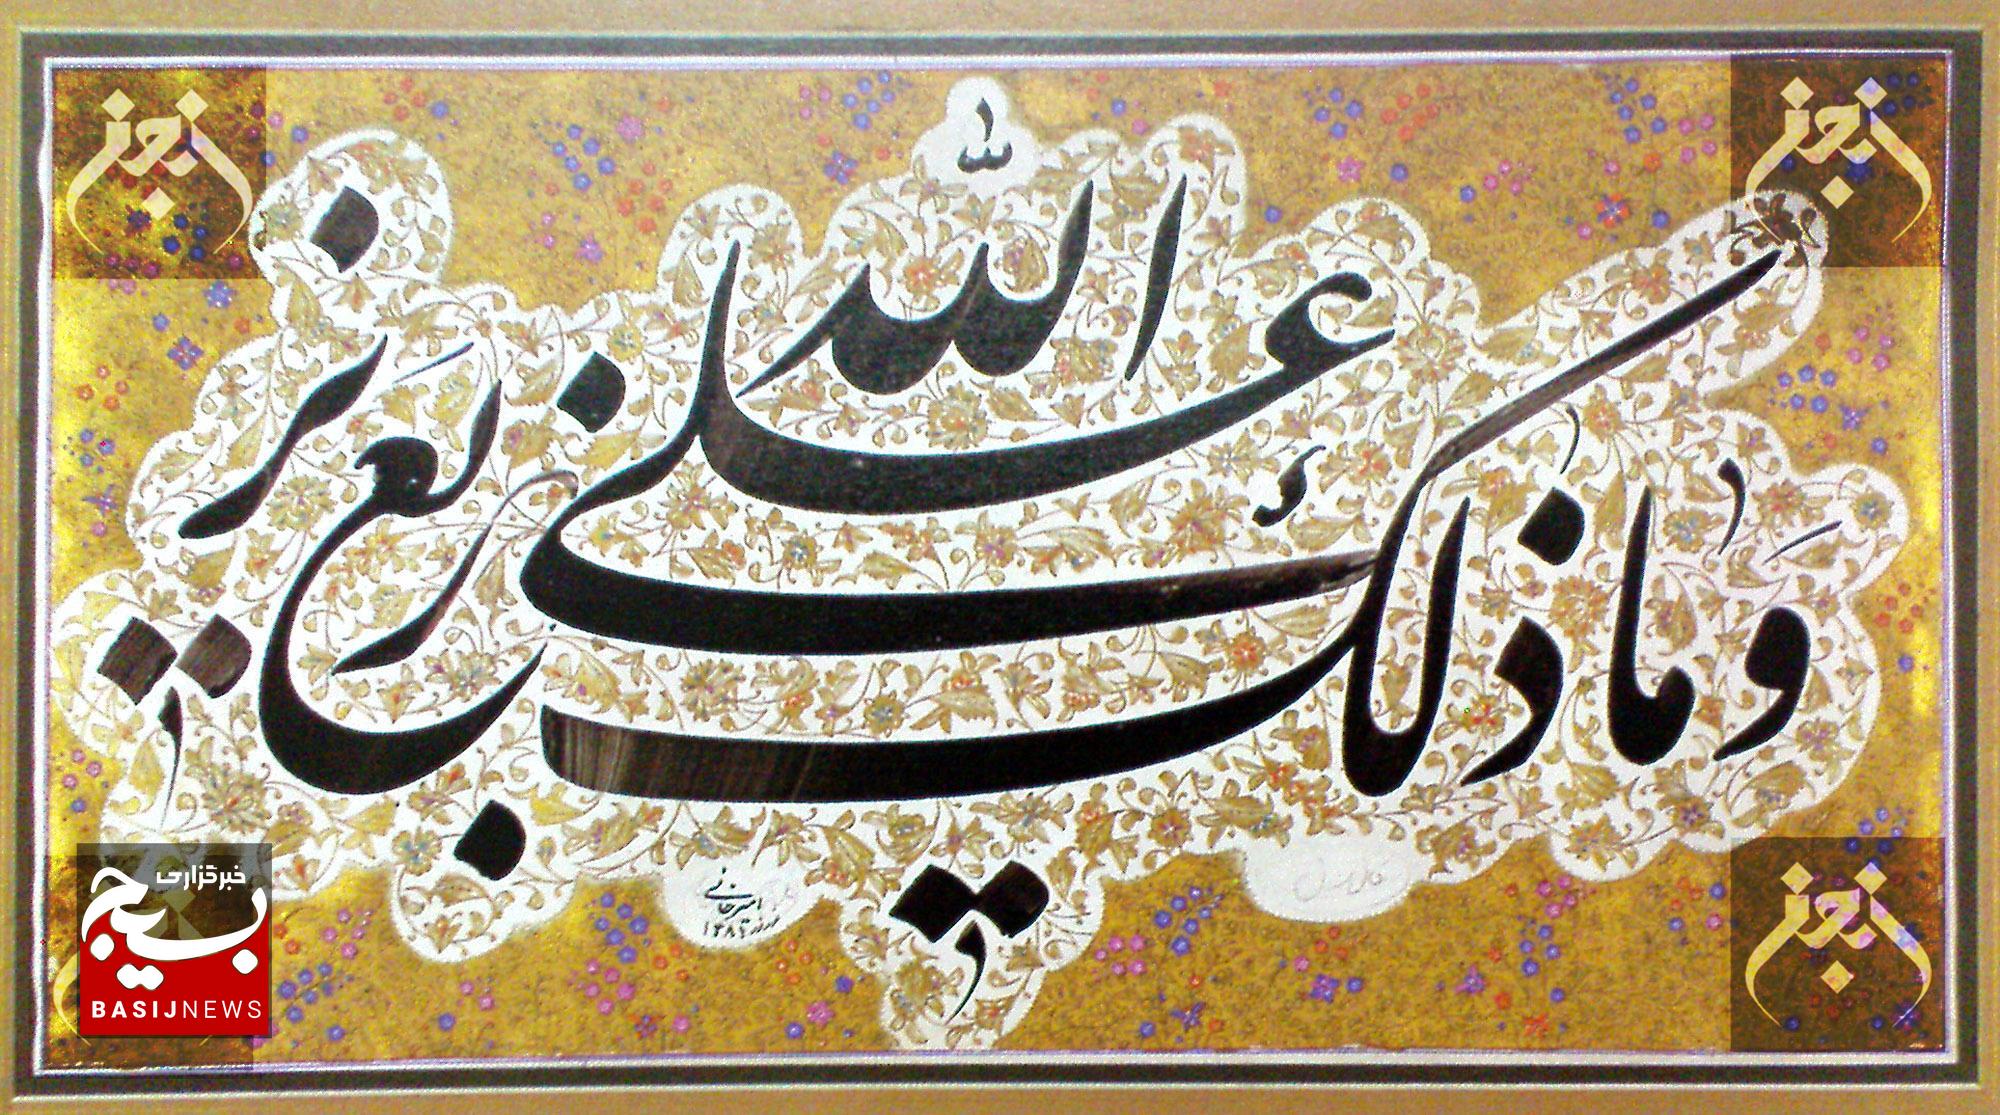 وَما ذلِکَ عَلَی اللهِ بِعَزیزٍ
امیرخانی
۱۳۸۴
خبرگزاری
بسیج
BASIJNEWS